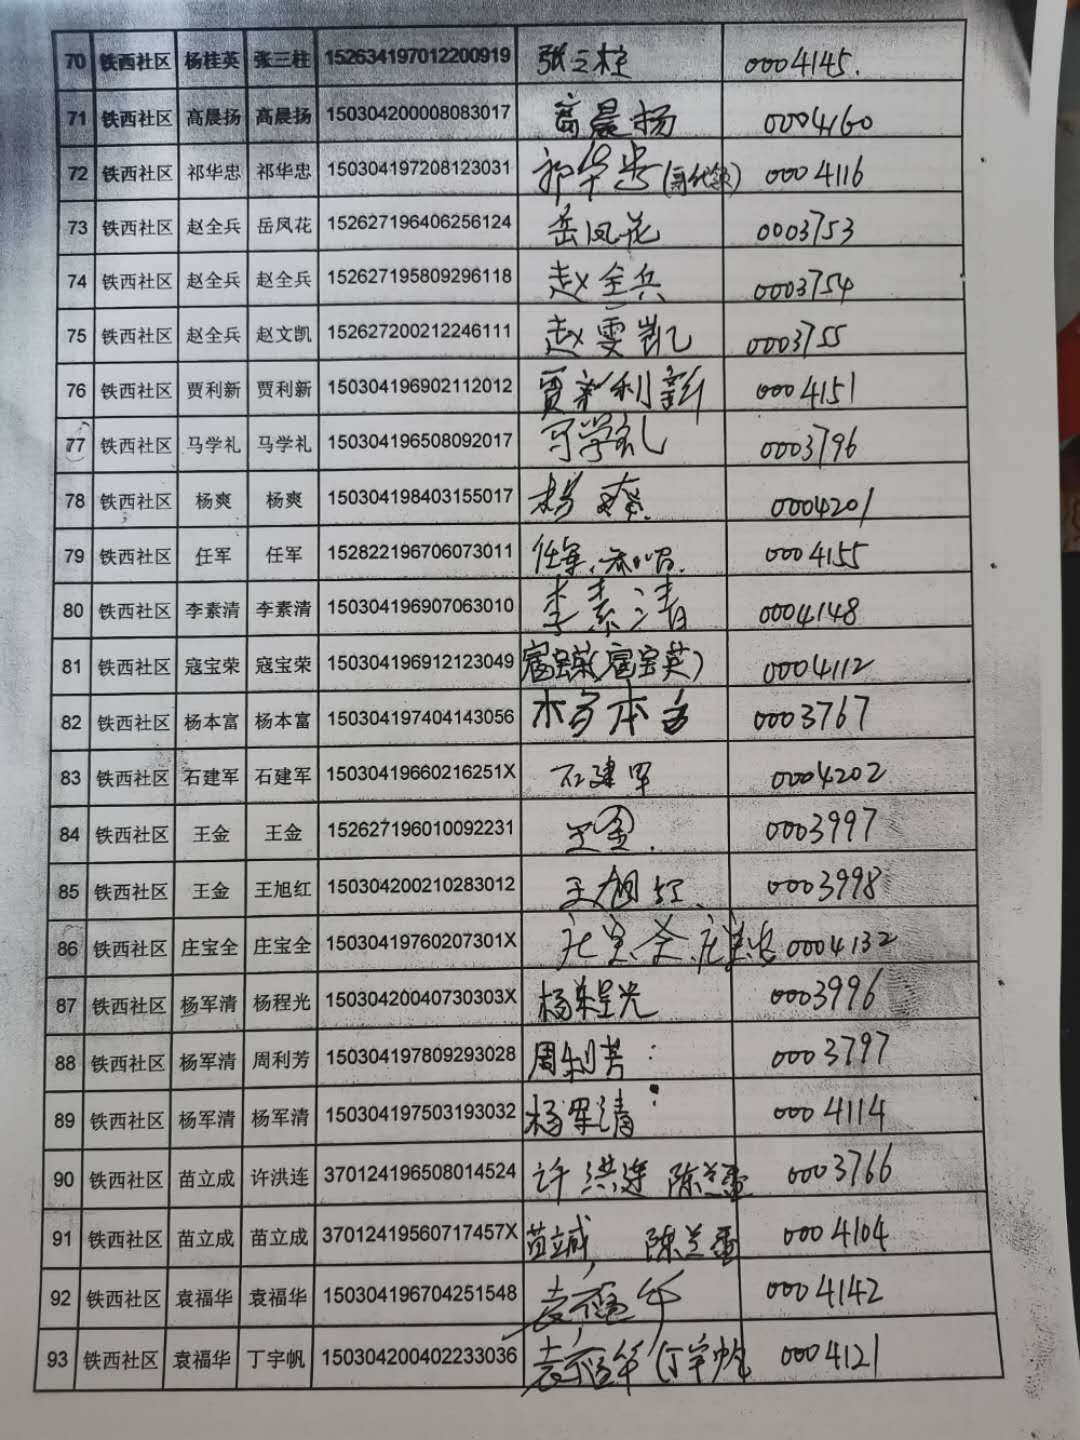 70 铁西社区 杨桂英 张三柱 152634197012200919 张三柱 0004145.
71 铁西社区 高晨扬 高晨扬 150304200008083017 高晨扬 0004160
72 铁西社区 祁华忠 祁华忠 150304197208123031 祁华忠 0004116
73 铁西社区 赵全兵 岳凤花 152627196406256124 岳凤花 0003753
74 铁西社区 赵全兵 赵全兵 152627195809296118 赵全兵 0003754
75 铁西社区 赵全兵 赵文凯 152627200212246111 赵雯凯 0003755
76 铁西社区 贾利新 贾利新 150304196902112012 0004151
77 铁西社区 马学礼 马学礼 150304196508092017 马学礼 0003796
78 铁西社区 杨爽 杨爽 150304198403155017 杨爽 0004201
79 铁西社区 任军 任军 152822196706073011 任军. 0004155
80 铁西社区 李素清 李素清 150304196907063010 李素清 0004148
81 铁西社区 寇宝荣 寇宝荣 150304196912123049 寇宝荣(寇宝英) 0004112
82 铁西社区 杨本富 杨本富 150304197404143056 杨本富 0003767
83 铁西社区 石建军 石建军 15030419660216251X 石建军 0004202
84 铁西社区 王金 王金 152627196010092231 王金. 0003997
85 铁西社区 王金 王旭红 150304200210283012 王旭红. 0003998
86 铁西社区 庄宝全 庄宝全 15030419760207301X 庄宝全. 0004132
87 铁西社区 杨军清 杨程光 15030420040730303X 杨程光 0003996
88 铁西社区 杨军清 周利芳 150304197809293028 周利芳 0003797
89 铁西社区 杨军清 杨军清 150304197503193032 杨军清 0004114
90 铁西社区 苗立成 许洪连 370124196508014524 许洪连 0003766
91 铁西社区 苗立成 苗立成 37012419560717457X 0004104
92 铁西社区 袁福华 袁福华 150304196704251548 袁福华 0004142
93 铁西社区 袁福华 丁宇帆 150304200402233036 袁福华(丁宇帆 0004121